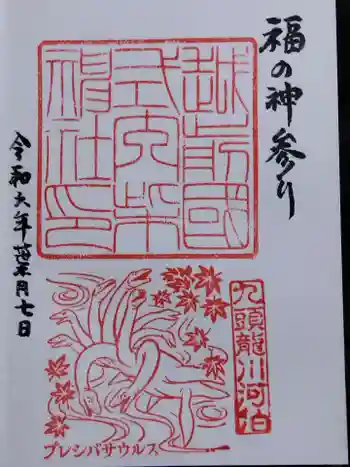 福の神参り
越前國
神社印
令和六年葉月七日
九頭龍川河伯
プレシパサウルス